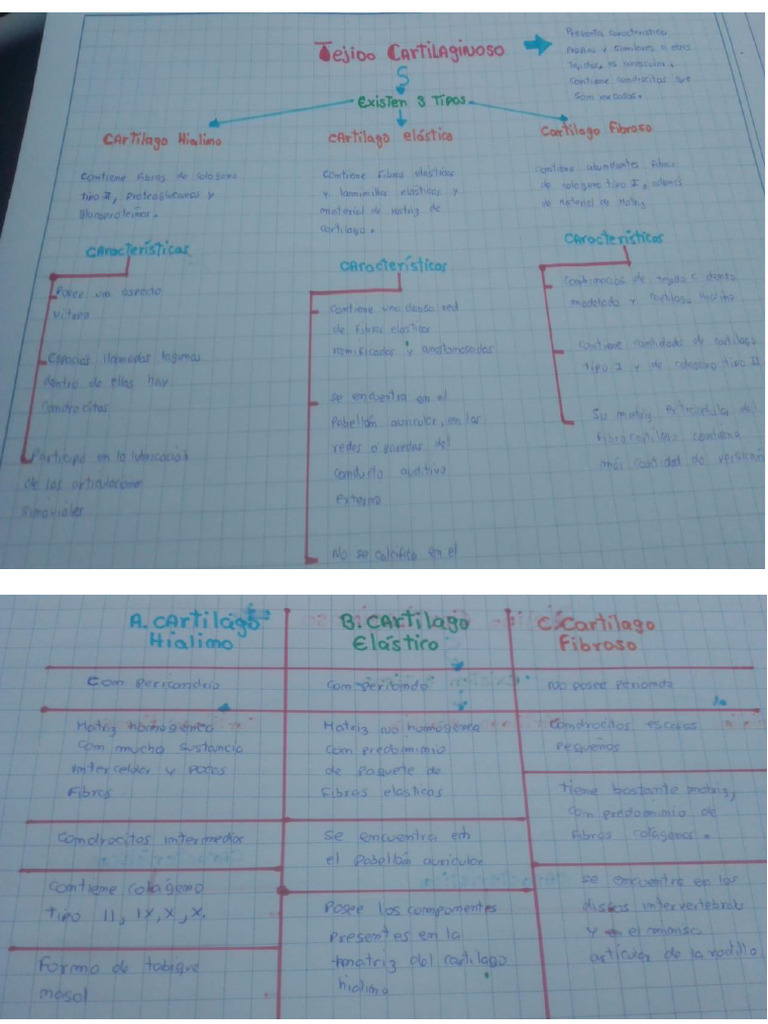 Tejido Cartilaginoso
Presenta caracteristicas
propias y similares a otros
tejidos, es avascular,
contiene condrocitos que
son
Existen 3 Tipos
Cartilago Hialimo
Contiene fibras de colageno
tipo II, Proteoglucanos y
Glucoproteinas.
Características
Posee um aspecto
vitreo
Espacios llamados lagunas
dentro de ellas hay
Condrocitos
Participa en la lubricación
de las articulaciones
simoviales
CArtilago elástico
Contiene fibras elásticas
y lamimillas elasticas y
material de matriz de
cartilago.
Características
Contiene una densa red
de fibras elasticas
ramificadas y anastomosadas
se encuentra en el
Pabellón auricular, en las
redes o paredes del
conducto auditivo
externo
No se calcifica en el
Cartilago fibroso
contiene abundantes fibras
de colageno tipo I, ademas
de material de Matriz
Características
Combinación de tejido C denso
modelado y cartilago hialino
Contiene cantidades de cartilago
tipo I y de colageno tipo II
Su matriz Extracelular del
fibrocartilago contiene
más cantidad de versican
A. Cartilago
Hialimo
Com pericondrio
Matriz homogénea
com mucha sustancia
intercelular y pocas
Fibras
Comdrocitos intermedios
Comtiene colageno
Tipo II, IX, X, X.
Forma de tabique
masal
B. Cartilago
Elástico
Com
Matriz no homogénea
com predomimio
de paquete de
Fibras elasticas
Se encuentra en
el Pabellón auricular
Posee los compomentes
presentes en la
matriz del cartilago
hialimo
C. Cartilago
Fibroso
No posee
Comdrocitos escasos
pequeños
tiene bastante matriz,
com predominio de
fibras colágenas.
se encuentra en los
discos intervertebrales
y en el menisco
artícular de la rodilla